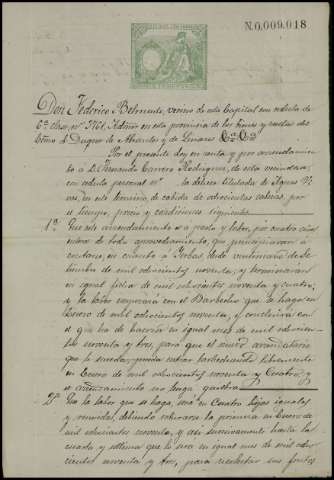 N.0,009,018
Don Federico Belmonte, vecino de esta Capital con cedula de
6ª clase, nº 3761, Admor en esta provincia de los bienes y rentas del
Excmo. Sr. Duque de Abrantes y de Linares
Por el presente doy en renta y por arrendamiento
á D. Fernando Carrero Rodriguez, de esta vecindad
con cedula personal nº la dehesa titulada de Aguas Vi
vas, en este termino, de cabida de ochocientas cabezas, por
el tiempo, precio y condiciones siguientes
1ª Que este arrendamiento es a pasto y labor, por cuatro años
y todo aprovechamiento, que principiaran á
contarse, en cuanto á Yerbas, desde veintinueve de Se
tiembre de mil ochocientos noventa, y terminaran
en igual fecha de mil ochocientos noventa y cuatro;
y la labor empezará con el Barbecho que se haga en
Enero de mil ochocientos noventa, y concluirá con
el que ha de hacerse en igual mes de mil ochocien
tos noventa y tres, para que el nuevo arrendatario
que le suceda, pueda entrar barbechando libremente
en Enero de mil ochocientos noventa y Cuatro, y
el arrendamiento no tenga
2ª Que la labor que se haga, será en Cuatro hojas iguales
y seguidas, debiendo labrarse la primera en Enero de
mil ochocientos noventa, y asi sucesivamente hasta la
cuarta y ultima que lo será en igual mes de mil ocho
cientos noventa y tres, para recolectar sus frutos